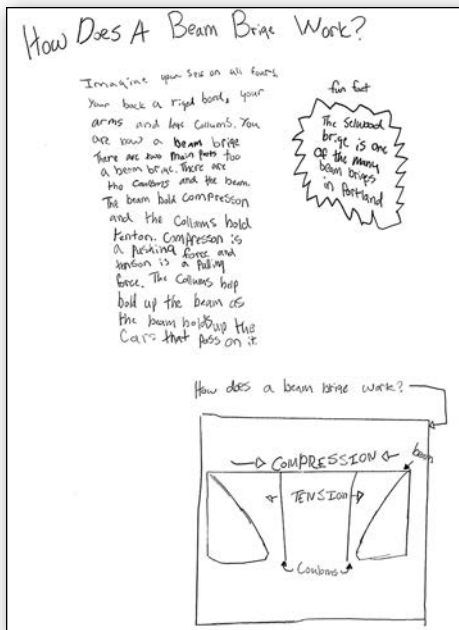 How Does A Beam Brige Work?
Imagine your self on all fours.
Your back a riged bord, your
arms and legs Collums. You
are now a beam brige
There are two main parts too
a beam brige. There are
the Coulbms and the beam.
The beam hold compresson
and the Collums hold
tenton. Compresson is
a pushing force and
tenson is a pulling
force. The Collums help
hold up the beam as
the beam holds up the
Cars that pass on it
fun fact
The Sellwood
brige is one
of the many
beam briges
in Portland
How does a beam brige work?
COMPRESSION
beam
TENSION
Coulbms